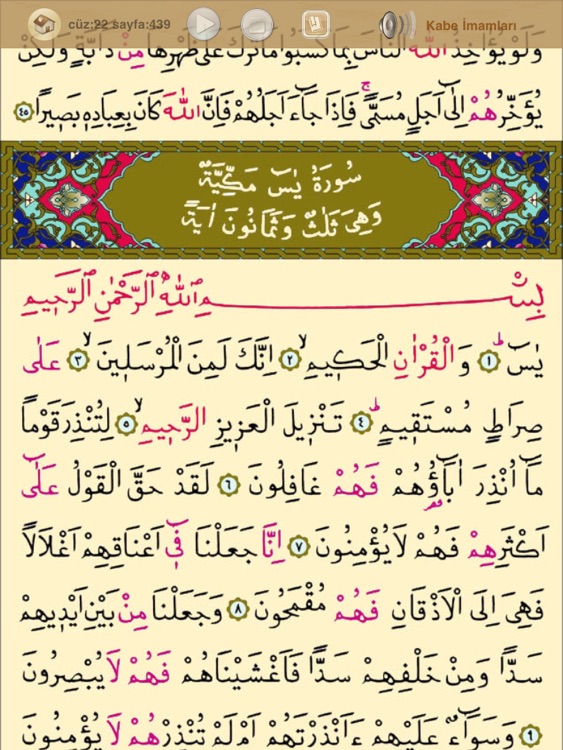 cüz:22 sayfa:439
Kabe İmamları
وَلَوْ يُؤَاخِذُ اللّٰهُ النَّاسَ بِمَا كَسَبُوا مَا تَرَكَ عَلٰى ظَهْرِهَا مِنْ دَٓابَّةٍ وَلٰكِنْ
يُؤَخِّرُهُمْ اِلٰٓى اَجَلٍ مُسَمًّىۚ فَاِذَا جَٓاءَ اَجَلُهُمْ فَاِنَّ اللّٰهَ كَانَ بِعِبَادِه۪ بَص۪يرًا ﴿٤٥﴾
سُورَةُ يٰسٓ مَكِّيَّةٌ
وَهِيَ ثَلٰثٌ وَثَمَانُونَ اٰيَةً
بِسْمِ اللّٰهِ الرَّحْمٰنِ الرَّح۪يمِ
يٰسٓۜ ﴿١﴾ وَالْقُرْاٰنِ الْحَك۪يمِۙ ﴿٢﴾ اِنَّكَ لَمِنَ الْمُرْسَل۪ينَۙ ﴿٣﴾ عَلٰى
صِرَاطٍ مُسْتَق۪يمٍۜ ﴿٤﴾ تَنْز۪يلَ الْعَز۪يزِ الرَّح۪يمِۙ ﴿٥﴾ لِتُنْذِرَ قَوْمًا
مَٓا اُنْذِرَ اٰبَٓاؤُ۬هُمْ فَهُمْ غَافِلُونَ ﴿٦﴾ لَقَدْ حَقَّ الْقَوْلُ عَلٰٓى
اَكْثَرِهِمْ فَهُمْ لَا يُؤْمِنُونَ ﴿٧﴾ اِنَّا جَعَلْنَا ف۪ٓي اَعْنَاقِهِمْ اَغْلَالًا
فَهِيَ اِلَى الْاَذْقَانِ فَهُمْ مُقْمَحُونَ ﴿٨﴾ وَجَعَلْنَا مِنْ بَيْنِ اَيْد۪يهِمْ
سَدًّا وَمِنْ خَلْفِهِمْ سَدًّا فَاَغْشَيْنَاهُمْ فَهُمْ لَا يُبْصِرُونَ
﴿٩﴾ وَسَوَٓاءٌ عَلَيْهِمْ ءَاَنْذَرْتَهُمْ اَمْ لَمْ تُنْذِرْهُمْ لَا يُؤْمِنُونَ